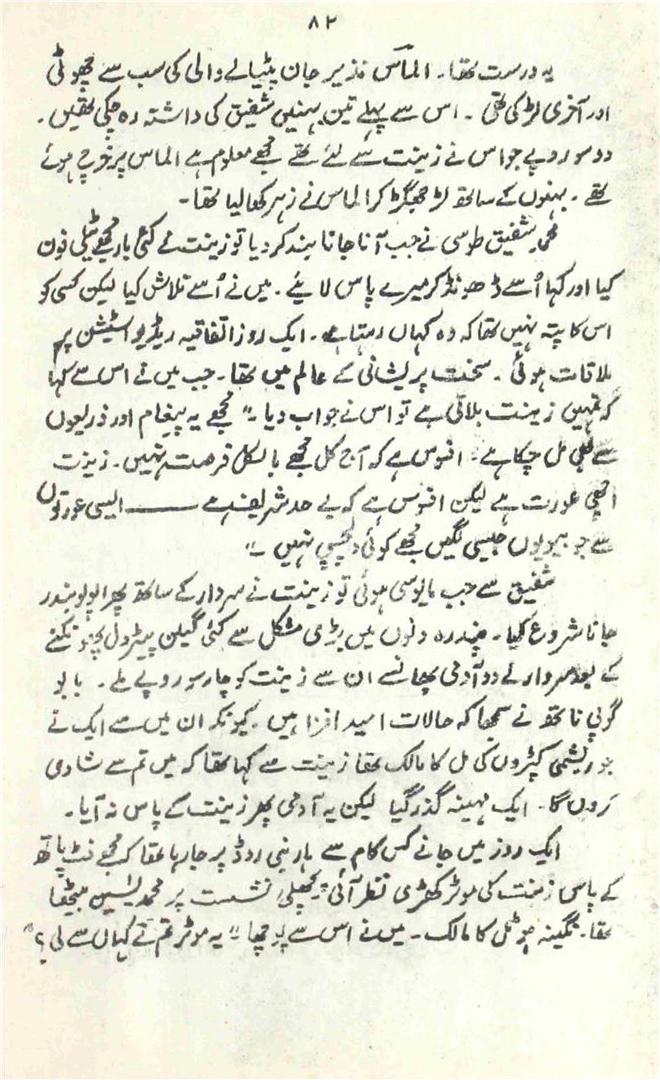 ۸۲
یہ درست تھا۔ الماس نذیر جان پٹیالے والی کی سب سے چھوٹی
اور آخری لڑکی تھی۔ اس سے پہلے تین بہنیں شفیق کی داشتہ رہ چکی تھیں۔
دو سو روپے جو اس نے زینت سے لئے تھے مجھے معلوم ہے الماس پر خرچ ہوئے
تھے۔ بہنوں کے ساتھ لڑ جھگڑ کر الماس نے زہر کھا لیا تھا۔
محمد شفیق طوسی نے جب آنا جانا بند کر دیا تو زینت نے کئی بار مجھے ٹیلی فون
کیا اور کہا اُسے ڈھونڈ کر میرے پاس لائیے۔ میں نے اُسے تلاش کیا لیکن کسی کو
اس کا پتہ نہیں تھا کہ وہ کہاں رہتا ہے۔ ایک روز اتفاقیہ ریڈیو اسٹیشن پر
ملاقات ہوئی۔ سخت پریشانی کے عالم میں تھا۔ جب میں نے اس سے کہا
کہ تمہیں زینت بلاتی ہے تو اس نے جواب دیا۔" مجھے یہ پیغام اور ذریعوں
سے بھی مل چکا ہے۔ افسوس ہے کہ آج کل مجھے بالکل فرصت نہیں۔ زینت
اچھی عورت ہے لیکن افسوس ہے کہ بے حد شریف ہے ——— ایسی عورتوں
سے جو بیویوں جیسی لگیں مجھے کوئی دلچسپی نہیں۔"
شفیق سے جب مایوسی ہوئی تو زینت نے سردار کے ساتھ پھر اپولو بندر
جانا شروع کیا۔ پندرہ دنوں میں بڑی مشکل سے کئی گیلن پیٹرول پھونکنے
کے بعد سردار نے دو آدمی پھانسے ان سے زینت کو چار سو روپے ملے۔ بابو
گوپی ناتھ نے سمجھا کہ حالات امید افزا ہیں۔ کیونکہ ان میں سے ایک نے
جو ریشمی کپڑوں کی مل کا مالک تھا زینت سے کہا تھا کہ میں تم سے شادی
کروں گا۔ ایک مہینہ گذر گیا لیکن یہ آدمی پھر زینت کے پاس نہ آیا۔
ایک روز میں جانے کس کام سے ہاربنی روڈ پر جا رہا تھا کہ مجھے فٹ پاتھ
کے پاس زینت کی موٹر کھڑی نظر آئی پچھلی نشست پر محمد یٰسین بیٹھا
تھا۔ نگینہ ہوٹل کا مالک۔ میں نے اس سے پوچھا۔" یہ موٹر تم نے کہاں سے لی؟"